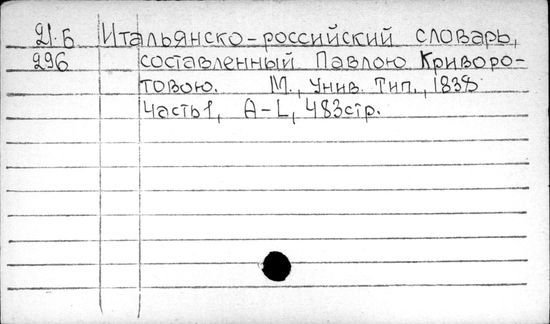 21.Б Итальянско-российский словарь,
296 составленный Павлою Криворо-
товою. М., Унив. Тип., 1838
Часть 1, A-L, 483стр.